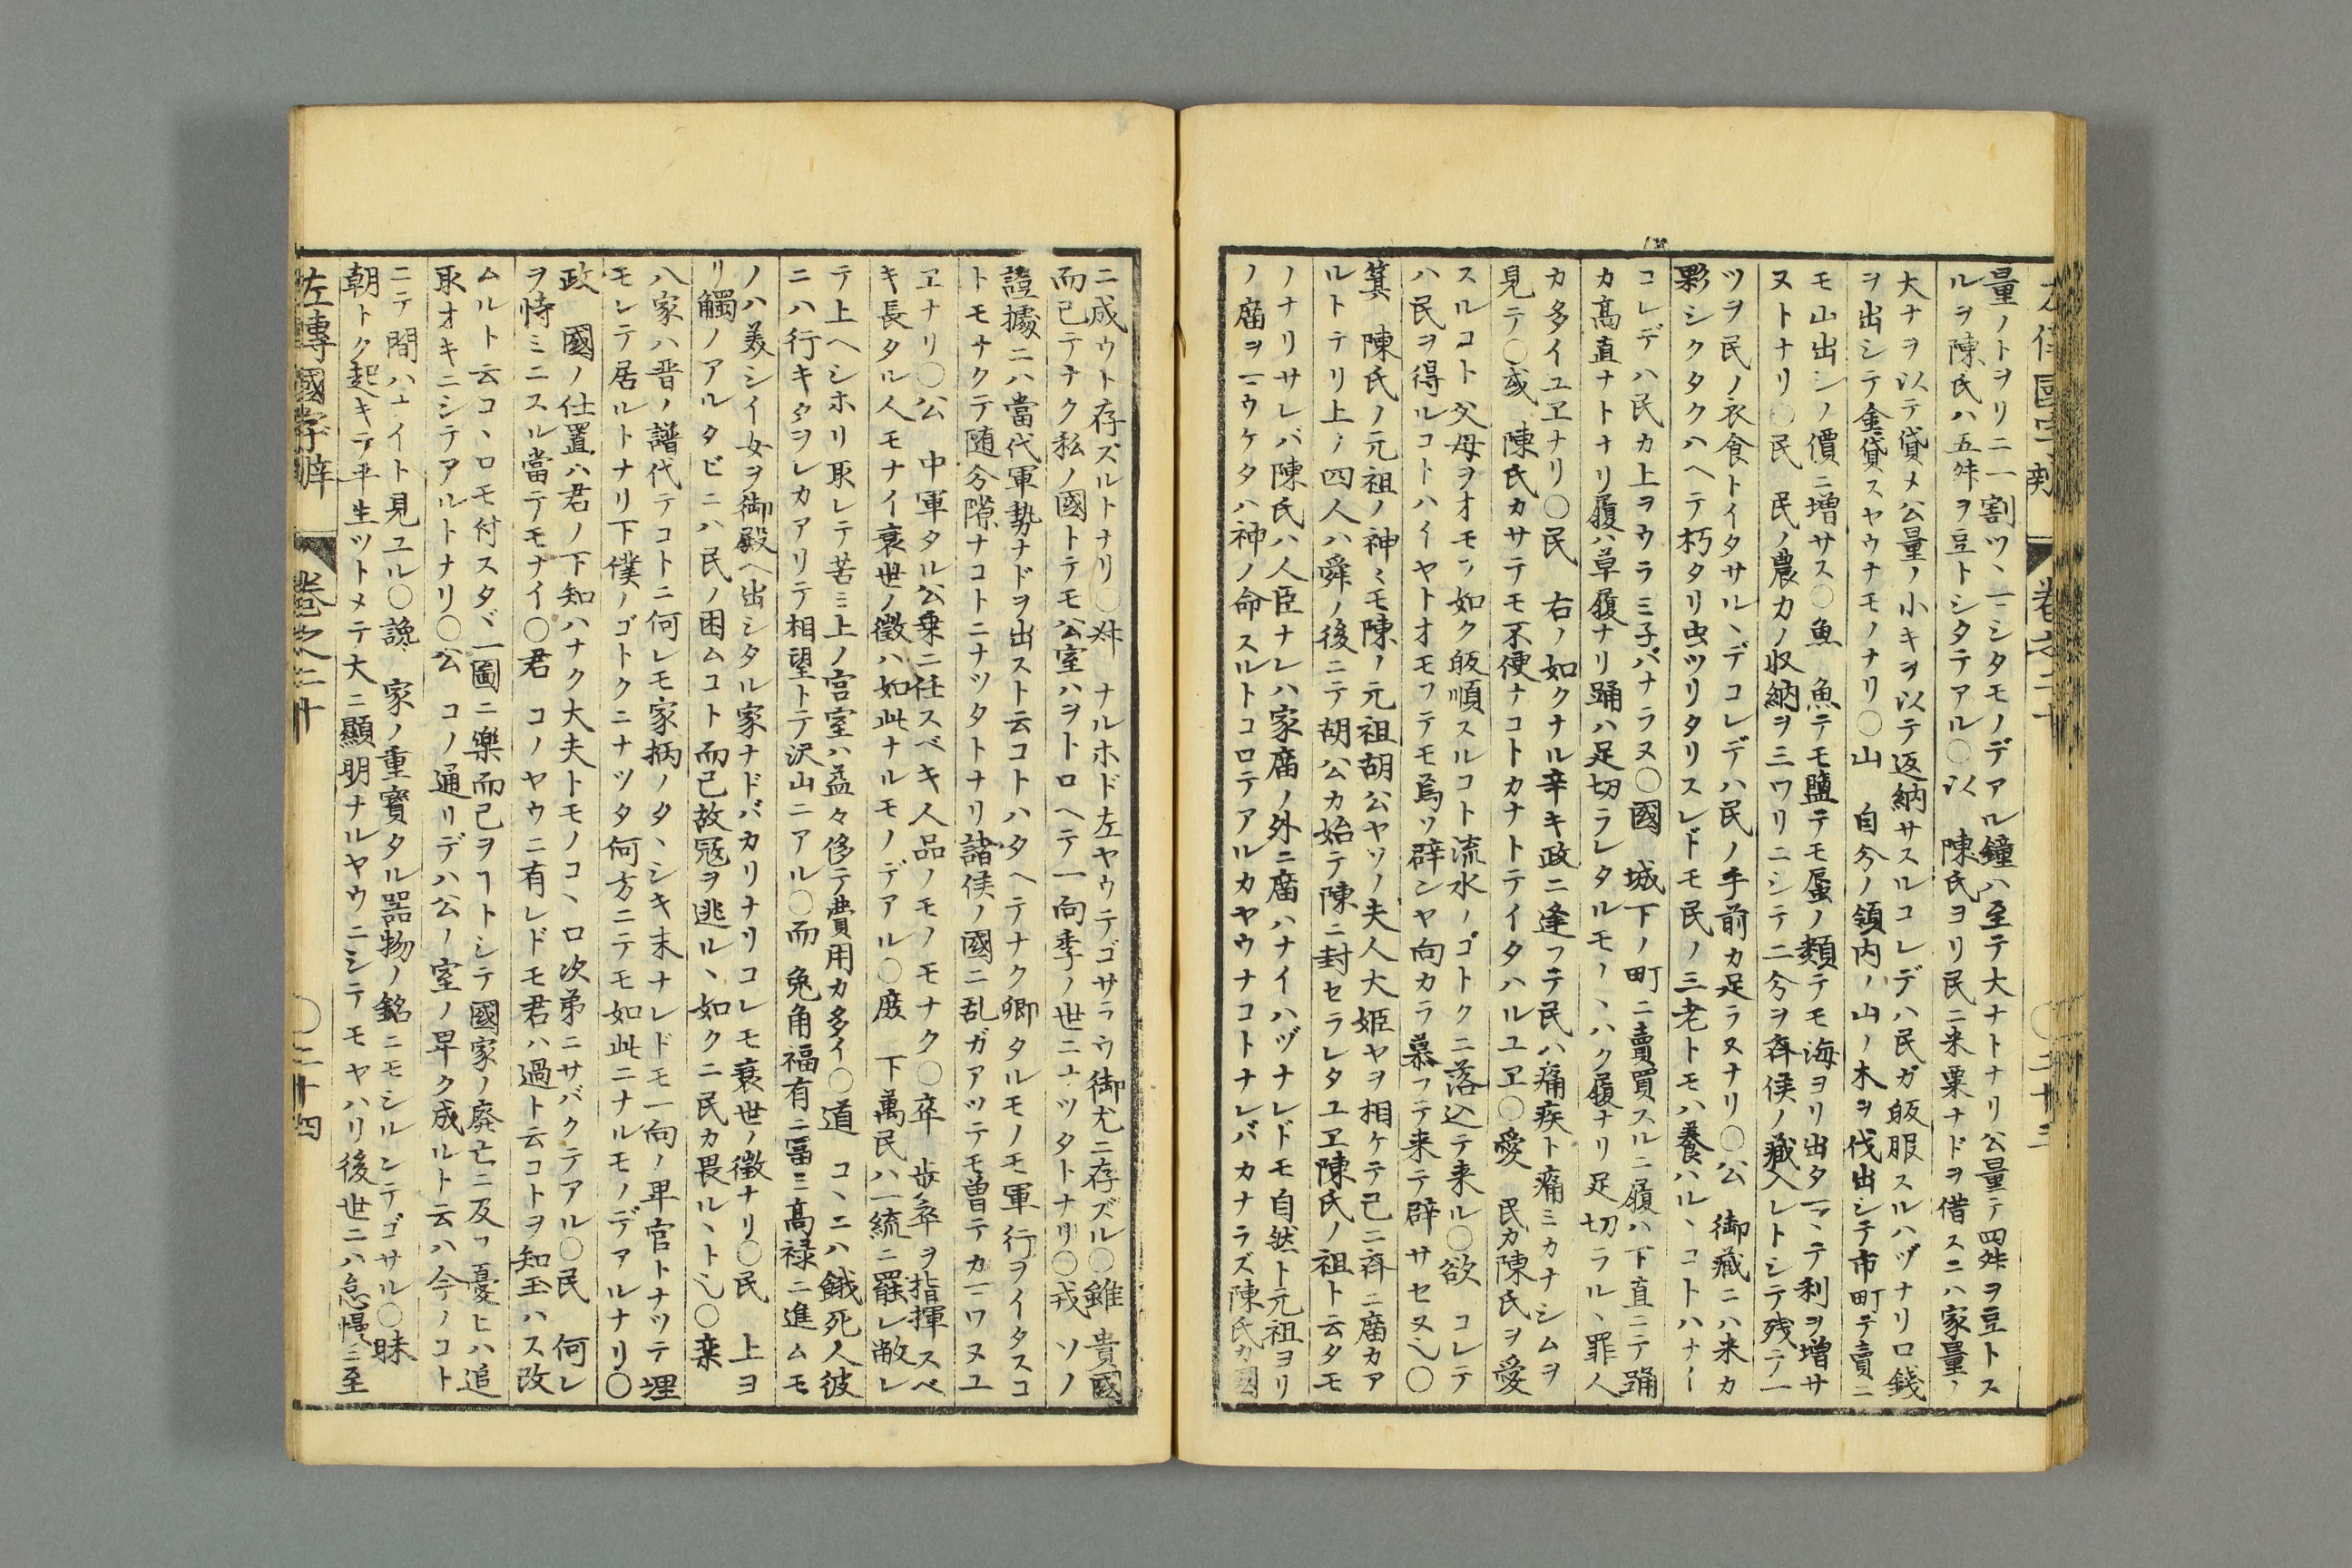 量ノトヲリニ一割ツヽマシタモノデアル鐘ハ至テ大ナトナリ公量テ四舛ヲ豆トス
ルヲ陳氏ハ五舛ヲ豆トシタテアル〇以 陳氏ヨリ民ニ米粟ナドヲ借スニハ家量ノ
大ナヲ以テ貸メ公量ノ小キヲ以テ返納サスルコレデハ民ガ皈服スルハヅナリロ錢
ヲ出シテ金貸スヤウナモノナリ〇山 自今ノ領内ノ山ノ木ヲ伐出シテ市町デ賣ニ
モ山出シノ價ニ増サス〇魚 魚テモ鹽テモ蜃ノ類テモ海ヨリ出タマヽテ利ヲ増サ
ヌトナリ〇民 民ノ農カノ収納ヲ三ワリニシテ二今ヲ斉侯ノ藏入レトシテ残テ一
ツヲ民ノ衣食トイタサルヽデコレデハ民ノ手前カ足ラヌナリ〇公 御藏ニハ米カ
夥シクタクハヘテ朽タリ虫ツリタリスレドモ民ノ三老トモハ養ハルヽコトハナイ
コレデハ民カ上ヲウラミ子バナラヌ〇國 城下ノ町ニ賣買スルニ履ハ下直ニテ踊
カ髙直ナトナリ履ハ草履ナリ踊ハ足切ラレタルモノヽハク履ナリ足切ラルヽ罪人
カ多イユヱナリ〇民 右ノ如クナル辛キ政ニ逢フテ民ハ痛疾ト痛ミカナシムヲ
見テ〇或 陳氏カサテモ不便ナコトカナトテイタハルユヱ〇愛 民カ陳氏ヲ愛
スルコト父母ヲオモフ如ク皈順スルコト流水ノゴトクニ落込テ来ル〇欲 コレテ
ハ民ヲ得ルコトハイヤトオモフテモ烏ソ辟ンヤ向カラ慕フテ来テ辟サセヌ也〇
箕 陳氏ノ元祖ノ神ミモ陳ノ元祖胡公ヤソノ夫人大姫ヤヲ相ケテ己ニ斉ニ廟カア
ルトテリ上ノ四人ハ舜ノ後ニテ胡公カ始テ陳ニ封セラレタユヱ陳氏ノ祖ト云タモ
ノナリサレバ陳氏ハ人臣ナレハ家廟ノ外ニ廟ハナイハヅナレドモ自然ト元祖ヨリ
ノ廟ヲマウケタハ神ノ命スルトコロテアルカヤウナコトナレバカナラズ陳氏カ國
二十三
ニ成ウト存ズルトナリ〇叔 ナルホド左ヤウテゴサラウ御尤ニ存ズル〇雖 貴國
而已テナク私ノ國トテモ公室ハヲトロヘテ一向季ノ世ニナツタトナリ〇戎 ソノ
證據ニハ當代軍勢ナドヲ出スト云コトハタヘテナク卿タルモノモ軍行ヲイタスコ
トモナクテ随分隙ナコトニナツタトナリ諸侯ノ國ニ乱ガアツテモ曽テカマワヌユ
ヱナリ〇公 中軍タル公乗ニ任スベキ人品ノモノモナク〇卒 歩卒ヲ指揮スベ
キ長タル人モナイ衰世ノ徴ハ如此ナルモノデアル〇庻 下萬民ハ一統ニ罷レ敝レ
テ上ヘシホリ取レテ苦ミ上ノ宮室ハ益々侈テ費用カ多イ〇道 コヽニハ餓死人彼
ニハ行キタヲレカアリテ相望トテ沢山ニアル〇而 兔角福有ニ冨ミ髙禄ニ進ムモ
ノハ美シイ女ヲ御殿ヘ出シタル家ナドバカリナリコレモ衰世ノ徴ナリ〇民 上ヨ
リ觸ノアルタビニハ民ノ困ムコト而已故冦ヲ逃ルヽ如クニ民カ畏ルヽト也〇欒
八家ハ晋ノ譜代テコトニ何レモ家柄ノタヽシキ末ナレドモ一向ノ卑官トナツテ埋
モレテ居ルトナリ下僕ノゴトクニナツタ何方ニテモ如此ニナルモノデアルナリ〇
政 國ノ仕置ハ君ノ下知ハナク大夫トモノコヽロ次弟ニサバクテアル〇民 何レ
ヲ恃ミニスル當テモナイ〇君 コノヤウニ有レドモ君ハ過ト云コトヲ知玉ハス改
ムルト云コヽロモ付スタヾ一圖ニ樂而己ヲヿトシテ國家ノ廃亡ニ及フ憂ヒハ追
取オキニシテアルトナリ〇公 コノ通リデハ公ノ室ノ早ク成ルト云ハ今ノコト
ニテ間ハナイト見ユル〇讒 家ノ重寳タル噐物ノ銘ニモシルシテゴサル〇昧
朝トク起キテ平生ツトメテ大ニ顯明ナルヤウニシテモヤハリ後世ニハ怠慢ニ至
左傳國字辨 卷之二十 〇二十四